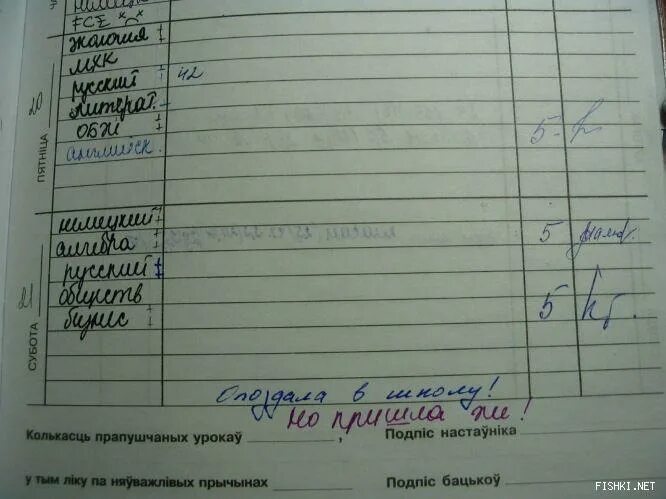 экология
МХК
русский 42
литерат.
ОБЖ 5
английск.
ПЯТНІЦА 20
немецкий
алгебра 5
русский
обществ 5
бизнес
СУБОТА 21
Опоздала в школу!
Но пришла же!
Колькасць прапушчаных урокаў , Подпіс настаўніка
у тым ліку па няўважлівых прычынах Подпіс бацькоў
FISHKI.NET